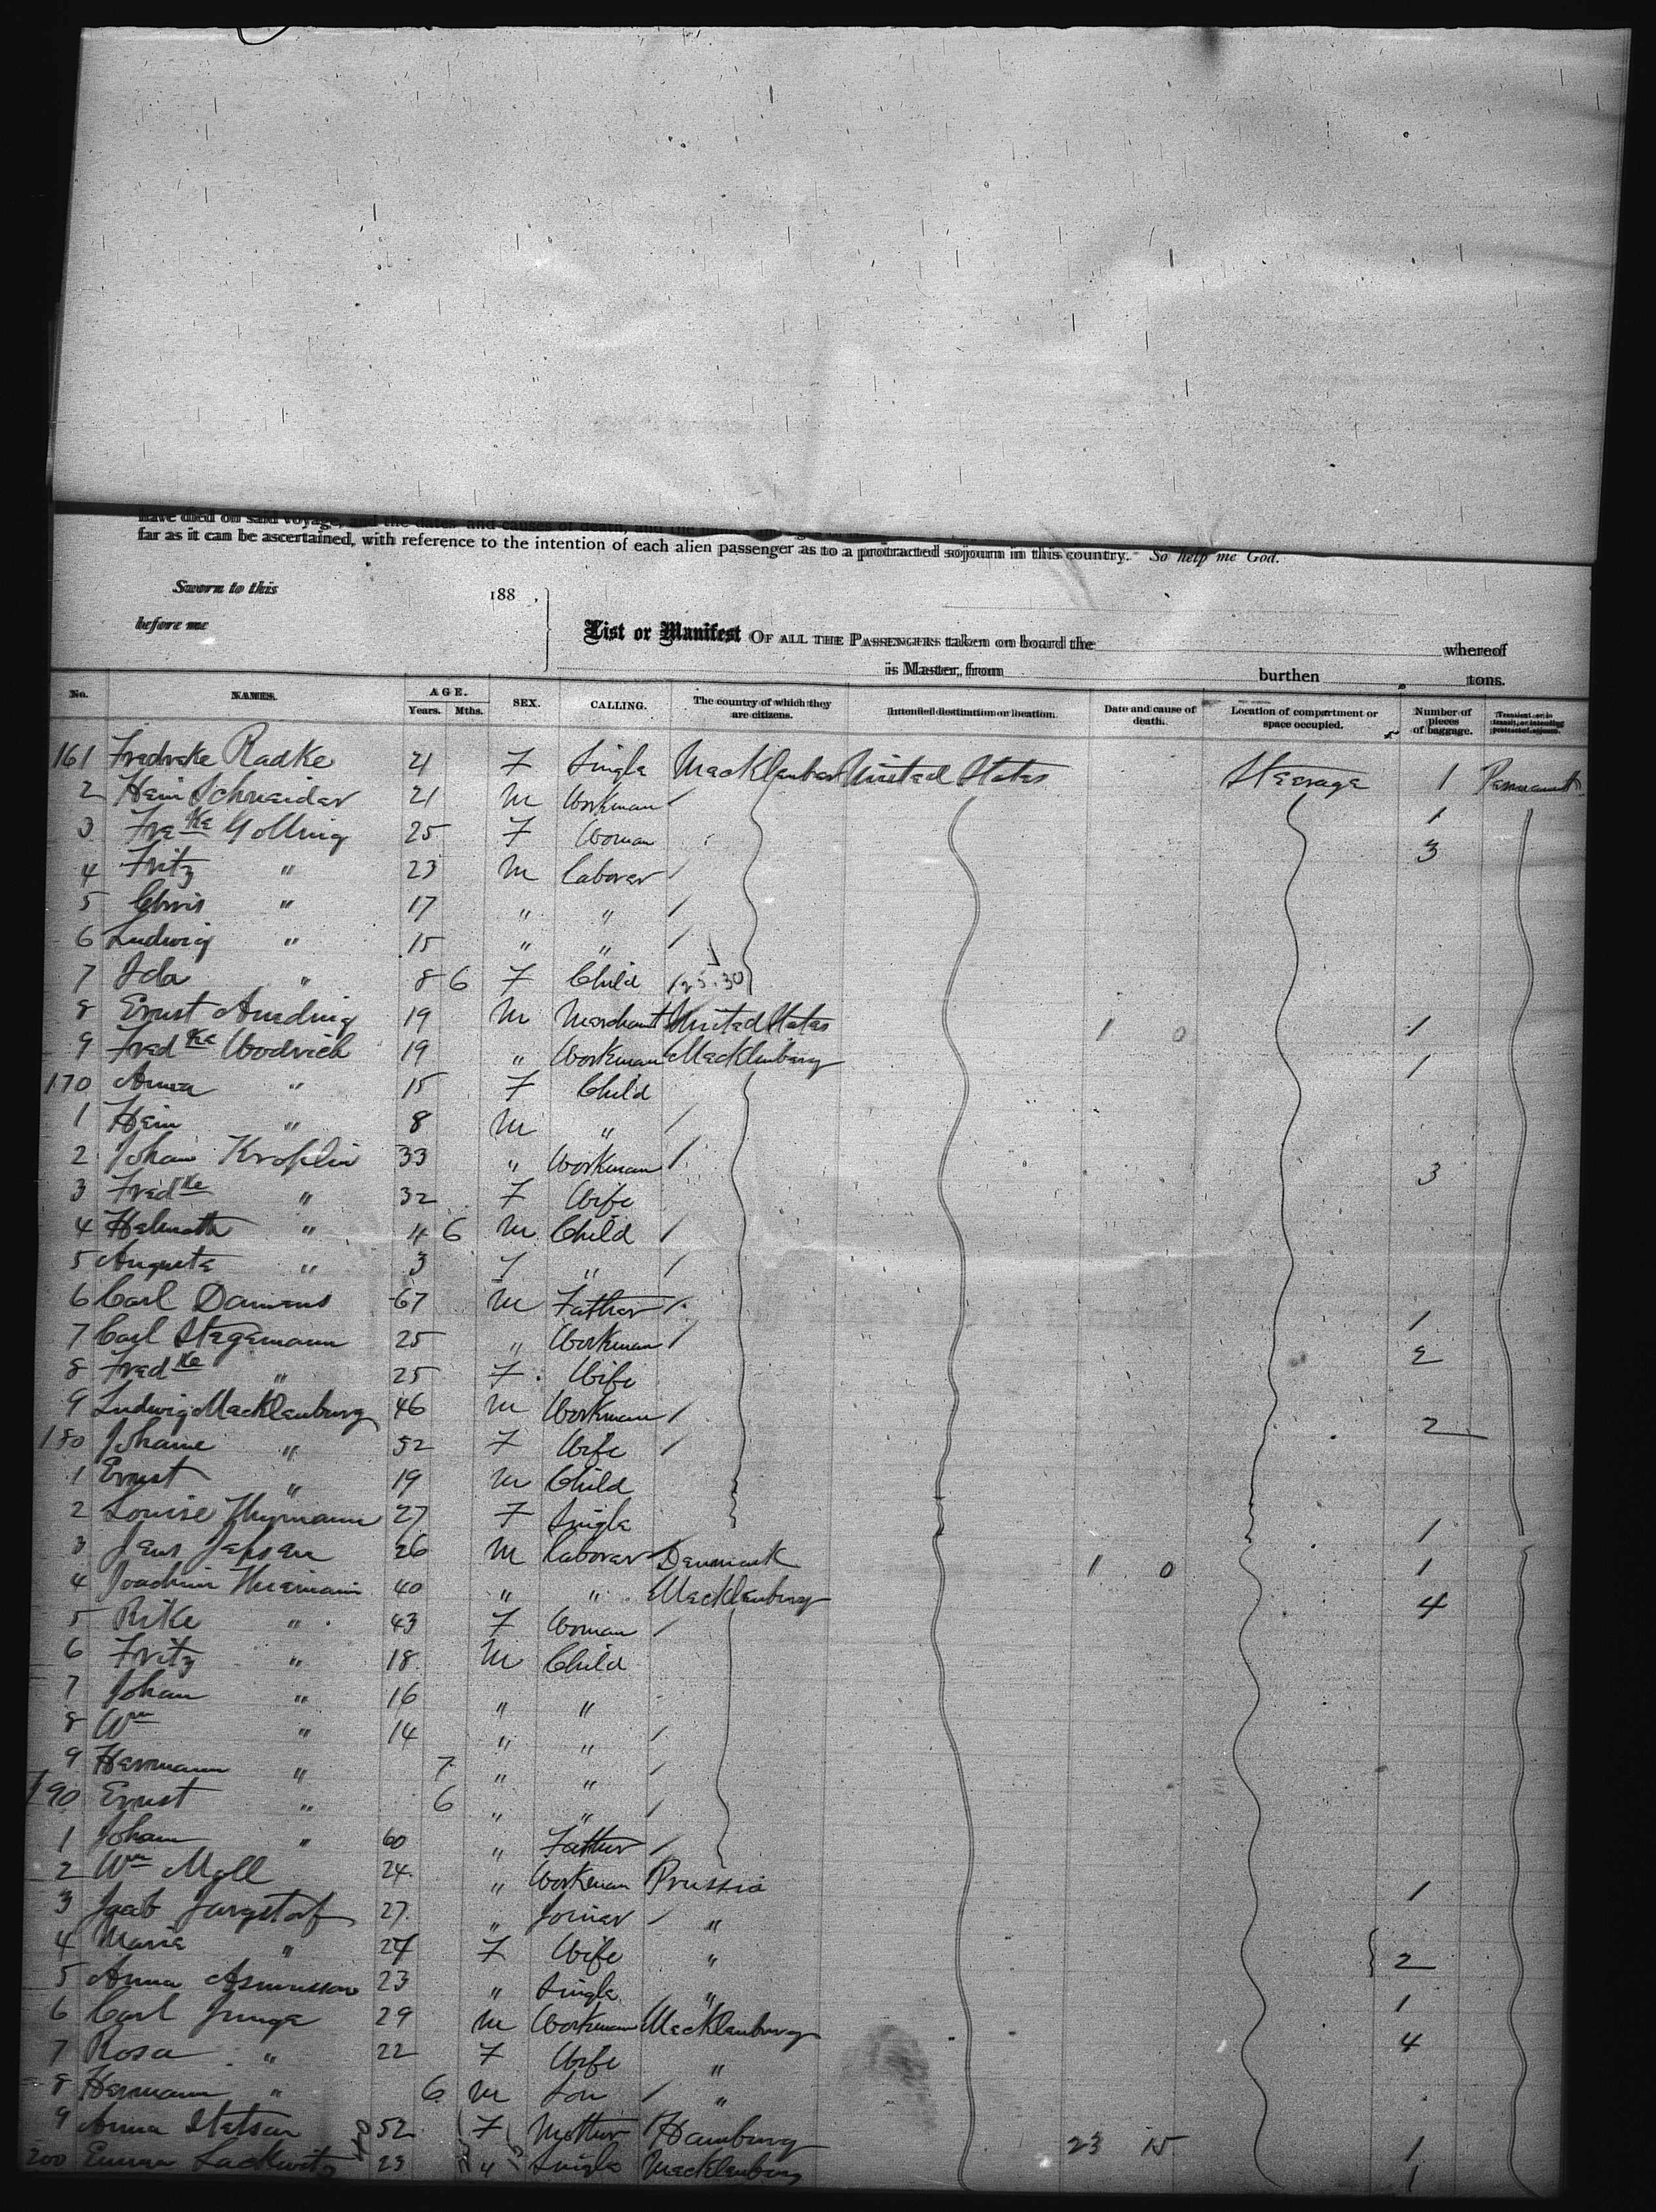 have died on said voyage, and the dates and causes of death, and the
far as it can be ascertained, with reference to the intention of each alien passenger as to a protracted sojourn in this country. So help me God.
Sworn to this 188 ,
before me
List or Manifest OF ALL THE PASSENGERS taken on board the whereof
is Master, from burthen tons.
No. NAMES. AGE. Years. Mths. SEX. CALLING. The country of which they are citizens. Intended destination or location. Date and cause of death. Location of compartment or space occupied. Number of pieces of baggage. Transient or in transit, or intending protracted sojourn.
161 Fredreke Radke 21 F Single Macklenber United States Steerage 1 Permanent
2 Hein Schneider 21 M Workman / 1
3 Fre ke Golling 25 F Woman 3
4 Fritz " 23 M Laborer /
5 Chris " 17 " " /
6 Ludwig " 15 " " /
7 Ida " 8 6 F Child 125.30
8 Ernst Amding 19 M Merchant United States 1 0 1
9 Fred ke Wodrich 19 " Workman Macklenburg 1
170 Anna " 15 F Child
1 Hein " 8 M " /
2 Johan Kroplin 33 " Workman / 3
3 Fred ke " 32 F Wife
4 Helmuth " 4 6 M Child /
5 Augusta " 3 F " /
6 Carl Damens 67 M Father / 1
7 Carl Stegemann 25 " Workman / 2
8 Fred ke " 25 F Wife
9 Ludwig Macklenburg 46 M Workman / 2
180 Johanne " 52 F Wife /
1 Ernst " 19 M Child
2 Louise 27 F Single 1
3 Jens Jepsen 26 M Laborer Denmark 1 0 1
4 Joachim 40 " " Macklenburg 4
5 Rike " 43 F Woman /
6 Fritz " 18 M Child
7 Johan " 16 " "
8 Wm " 14 " " /
9 Hermann " 7 " " /
190 Ernst " 6 " " /
1 Johann " 60 " Father /
2 Wm Moll 24 " Workman Prussia 1
3 Jacob Jargstorf 27 " Joiner / "
4 Marie " 27 F Wife " 2
5 Anna Asmussen 23 " Single " 1
6 Carl Junge 29 M Workman Macklenburg 4
7 Rosa " 22 F Wife "
8 Hermann " 6 M Son / "
9 Anna Stetson 52 F Mother / Hamburg 23 15 1
200 Emma Lackwitz 23 " Single Macklenburg 1